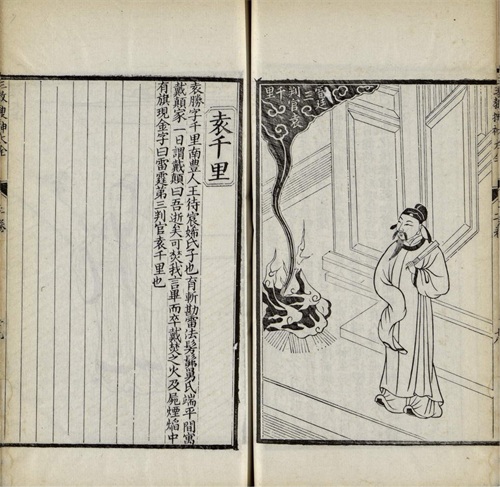 雷廷三
判官袁
千里
袁千里
袁勝字千里南豊人王待宸姊氏子也育斬勘雷法髣髴舅氏端平間寓
戴顛家一日謂戴顛曰吾逝矣可焚我言畢而卒戴焚之火及屍煙焰中
有旗現金字曰雷霆第三判官袁千里也